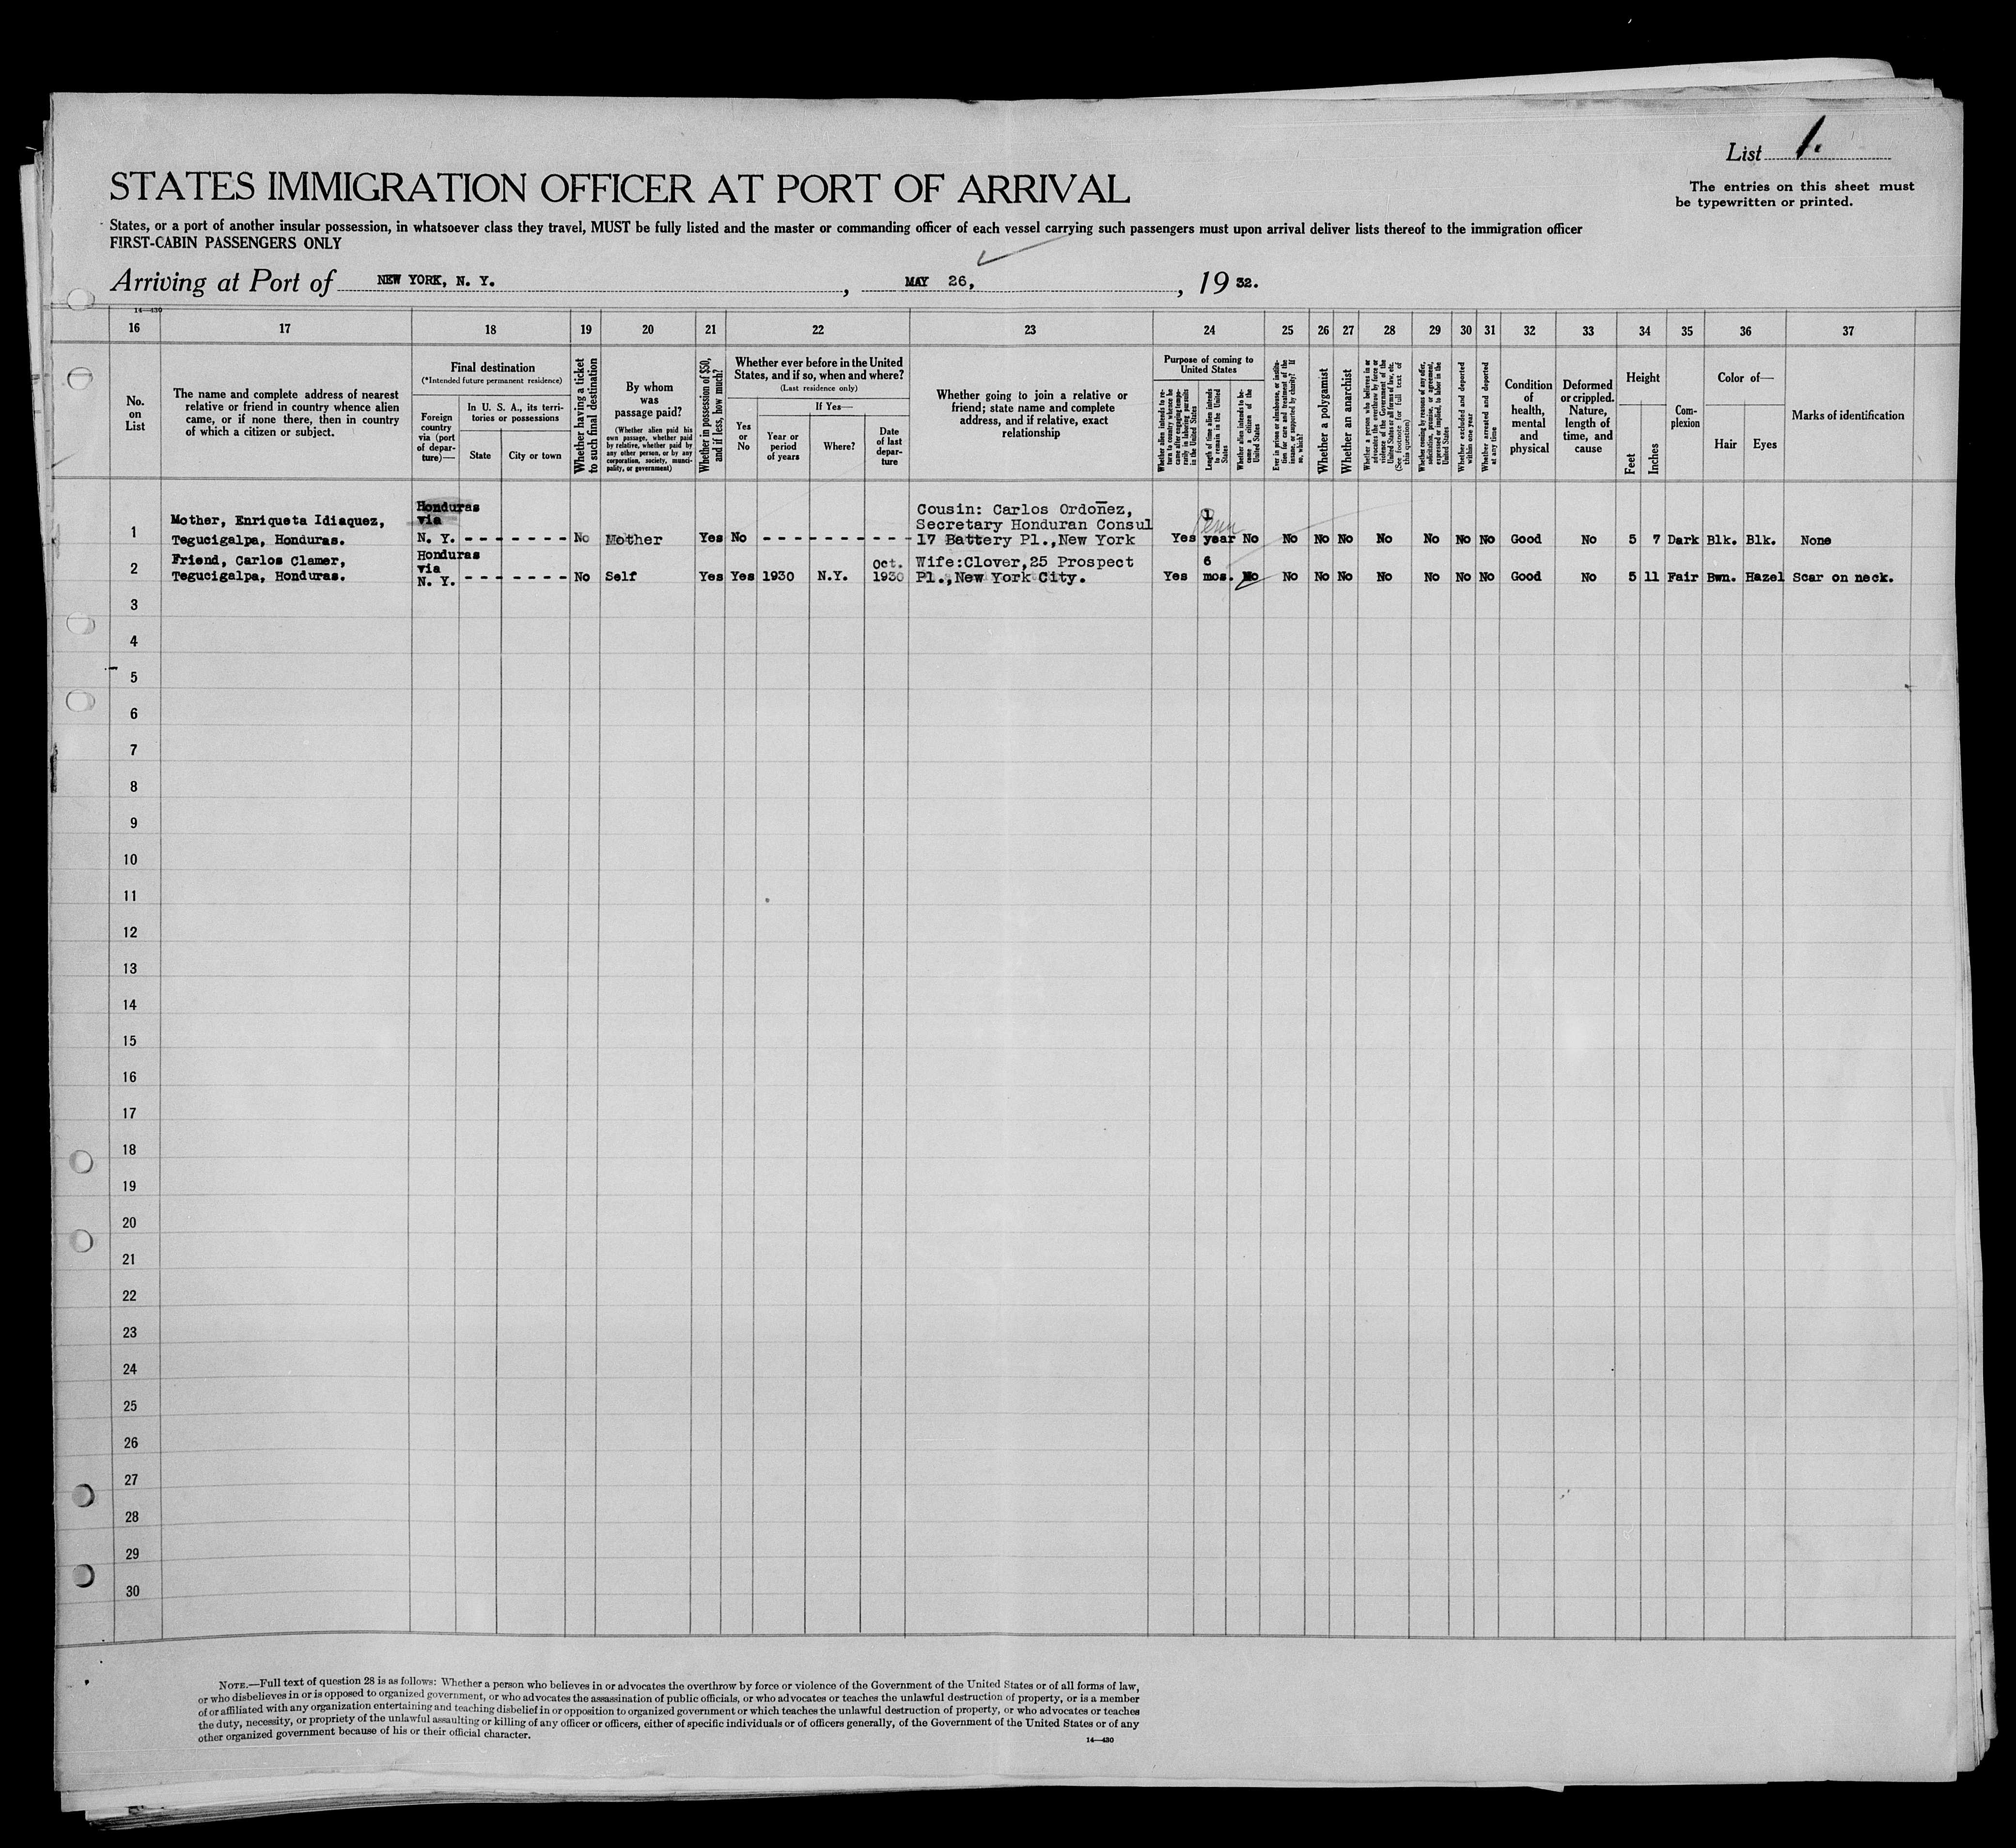 List 1.
STATES IMMIGRATION OFFICER AT PORT OF ARRIVAL
The entries on this sheet must
be typewritten or printed.
States, or a port of another insular possession, in whatsoever class they travel, MUST be fully listed and the master or commanding officer of each vessel carrying such passengers must upon arrival deliver lists thereof to the immigration officer
FIRST-CABIN PASSENGERS ONLY
Arriving at Port of NEW YORK, N. Y. , MAY 26, , 19 32.
14—430
16 17 18 19 20 21 22 23 24 25 26 27 28 29 30 31 32 33 34 35 36 37
No.
on
List
The name and complete address of nearest
relative or friend in country whence alien
came, or if none there, then in country
of which a citizen or subject.
Final destination
(*Intended future permanent residence)
Foreign
country
via (port
of depar-
ture)—
In U. S. A., its terri-
tories or possessions
State
City or town
Whether having a ticket
to such final destination
By whom
was
passage paid?
(Whether alien paid his
own passage, whether paid
by relative, whether paid by
any other person, or by any
corporation, society, munici-
pality, or government)
Whether in possession of $50,
and if less, how much?
Whether ever before in the United
States, and if so, when and where?
(Last residence only)
Yes
or
No
If Yes—
Year or
period
of years
Where?
Date
of last
depar-
ture
Whether going to join a relative or
friend; state name and complete
address, and if relative, exact
relationship
Purpose of coming to
United States
Whether alien intends to re-
turn to country whence he
came after engaging tempo-
rarily in laboring pursuits
in the United States
Length of time alien intends
to remain in the United
States
Whether alien intends to be-
come a citizen of the
United States
Ever in prison or almshouse, or institu-
tion for care and treatment of the
insane, or supported by charity? If
so, which?
Whether a polygamist
Whether an anarchist
Whether a person who believes in or
advocates the overthrow by force or
violence of the Government of the
United States or all forms of law, etc.
(See footnote for full text of
this question)
Whether coming by reasons of any offer,
solicitation, promise, or agreement,
expressed or implied, to labor in the
United States
Whether excluded and deported
within one year
Whether arrested and deported
at any time
Condition
of
health,
mental
and
physical
Deformed
or crippled.
Nature,
length of
time, and
cause
Height
Feet
Inches
Com-
plexion
Color of—
Hair
Eyes
Marks of identification
1
Mother, Enriqueta Idiaquez,
Tegucigalpa, Honduras.
Honduras
via
N. Y. - - - - - - - - No Mother Yes No - - - - - - - - - -
Cousin: Carlos Ordoñez,
Secretary Honduran Consul
17 Battery Pl.,New York
Yes 1 year No No No No No No No No Good No 5 7 Dark Blk. Blk. None
2
Friend, Carlos Clamer,
Tegucigalpa, Honduras.
Honduras
via
N. Y. - - - - - - - - No Self Yes Yes 1930 N.Y. Oct. 1930
Wife:Clover,25 Prospect
Pl.,New York City.
Yes 6 mos. No No No No No No No No Good No 5 11 Fair Bwn. Hazel Scar on neck.
3
4
5
6
7
8
9
10
11
12
13
14
15
16
17
18
19
20
21
22
23
24
25
26
27
28
29
30
NOTE.—Full text of question 28 is as follows: Whether a person who believes in or advocates the overthrow by force or violence of the Government of the United States or of all forms of law,
or who disbelieves in or is opposed to organized government, or who advocates the assassination of public officials, or who advocates or teaches the unlawful destruction of property, or is a member
of or affiliated with any organization entertaining and teaching disbelief in or opposition to organized government or which teaches the unlawful destruction of property, or who advocates or teaches
the duty, necessity, or propriety of the unlawful assaulting or killing of any officer or officers, either of specific individuals or of officers generally, of the Government of the United States or of any
other organized government because of his or their official character.
14—430